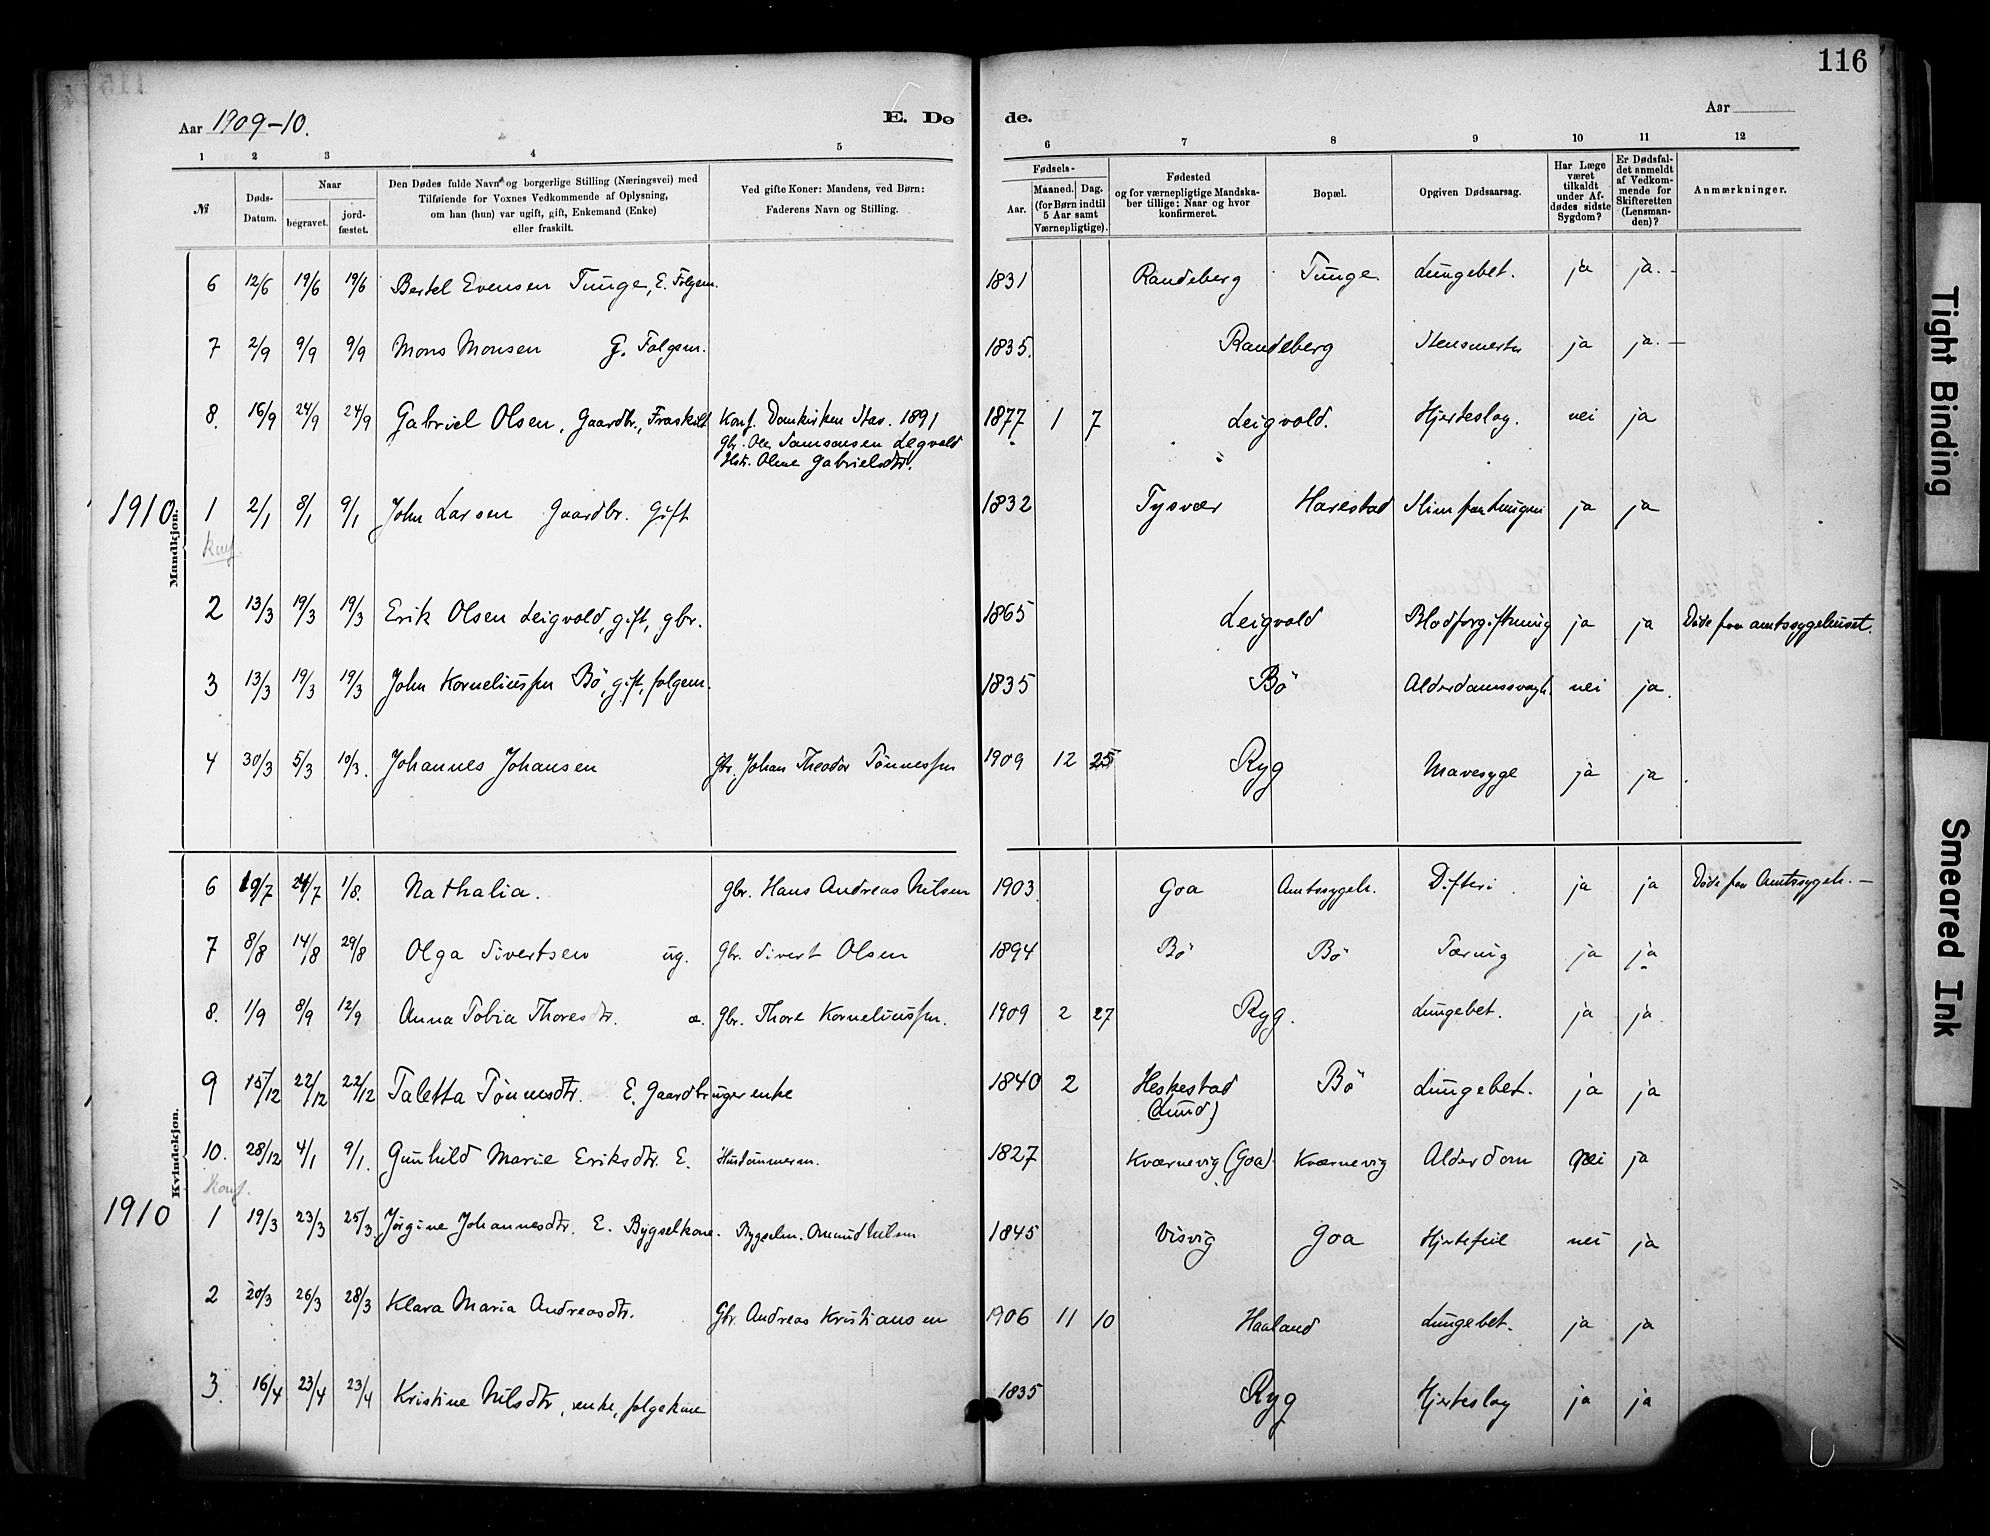 116
Aar 1909-10.
E. Dø
de.
Aar
1 2 3 4 5 6 7 8 9 10 11 12
№
Døds-Datum.
Naar
begravet.
jord-fæstet.
Den Dødes fulde Navn og borgerlige Stilling (Næringsvei) med
Tilføiende for Voxnes Vedkommende af Oplysning,
om han (hun) var ugift, gift, Enkemand (Enke)
eller fraskilt.
Ved gifte Koner: Mandens, ved Børn:
Faderens Navn og Stilling.
Fødsels-
Aar.
Maaned. Dag.
(for Børn indtil
5 Aar samt
Værnepligtige).
Fødested
og for værnepligtige Mandska-
ber tillige: Naar og hvor
konfirmeret.
Bopæl.
Opgiven Dødsaarsag.
Har Læge
været
tilkaldt
under Af-
dødes sidste
Sygdom?
Er Dødsfal-
det anmeldt
af Vedkom-
mende for
Skifteretten
(Lensman-
den)?
Anmærkninger.
Mandkjøn.
6 12/6 19/6 19/6 Bertel Evensen Tunge, E. Folgem. 1831 Randeberg Tunge Lungebet. ja ja. -
7 2/9 9/9 9/9 Mons Monsen G. Folgem. 1835. Randeberg ja ja. -
8. 16/9 24/9 24/9 Gabriel Olsen, Gaardbr., Fraskilt Konf. Domkirken Stav. 1891 1877 1 7 Leigvold. Hjerteslag. nei ja
Gbr. Ole Samsonsen Legvold
Hstr. Oline Gabrielsdtr.
1910. 1 2/1 8/1 9/1 John Larsen Gaardbr. Gift 1832 Tysvær Harestad ja ja
Konf.
2 13/3 19/3 19/3 Erik Olsen Leigvold, gift, gbr. 1865 Leigvold Blodforgiftning ja ja Døde paa amtssygehuset.
3 13/3 19/3 19/3 John Korneliussen Bö, gift, folgem. 1835 Bö Alderdomssvagh. nei ja.
4 30/3 5/3 10/3. Johannes Johansen Gbr. Johan Theodor Tønnessen 1909 12 25 Ryg Mavesyge ja ja
Kvindekjøn.
6 19/7 24/7 1/8. Nathalia. Gbr. Hans Andreas Nilsen 1903 Goa Amtssygeh. Difteri. ja ja Døde paa Amtssygeh. -
7 8/8 14/8 29/8 Olga Sivertsen ug. Gbr. Sivert Olsen 1894 Bö Bö Tæring ja ja
8. 1/9 8/9 12/9 Anna Tobia Thoresdtr. æ. Gbr. Thore Korneliussen. 1909 2 27 Ryg. Lungebet. ja ja.
9 15/12 22/12 22/12 Taletta Tønnesdtr. E. Gaardbrugerenke 1840 2 Heskestad Bö Lungebet. ja ja
(Lund)
10. 28/12 4/1 9/1. Gunhild Marie Eriksdtr. E. Hustømmerm. 1827 Kværnevig (Goa). Kværnevig Alderdom nei ja
Konf.
1910 1 19/3 23/3 25/3. Jørgine Johannesdtr. E. Bygselkone. Bygselm. Omund Nilsen 1845 Visvig Goa Hjertefeil nei ja
2 20/3 26/3 28/3 Klara Maria Andreasdtr. Gbr. Andreas Kristiansen 1906 11 10 Haaland Lungebet. ja ja
3. 16/4 23/4 23/4 Kristine Nilsdtr, enke, folgekone 1835 Ryg Hjerteslag ja ja
Tight Binding
Smeared Ink